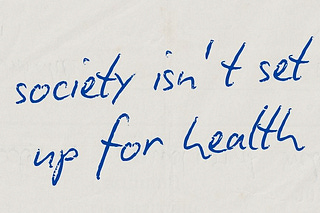 society isn't set
up for health